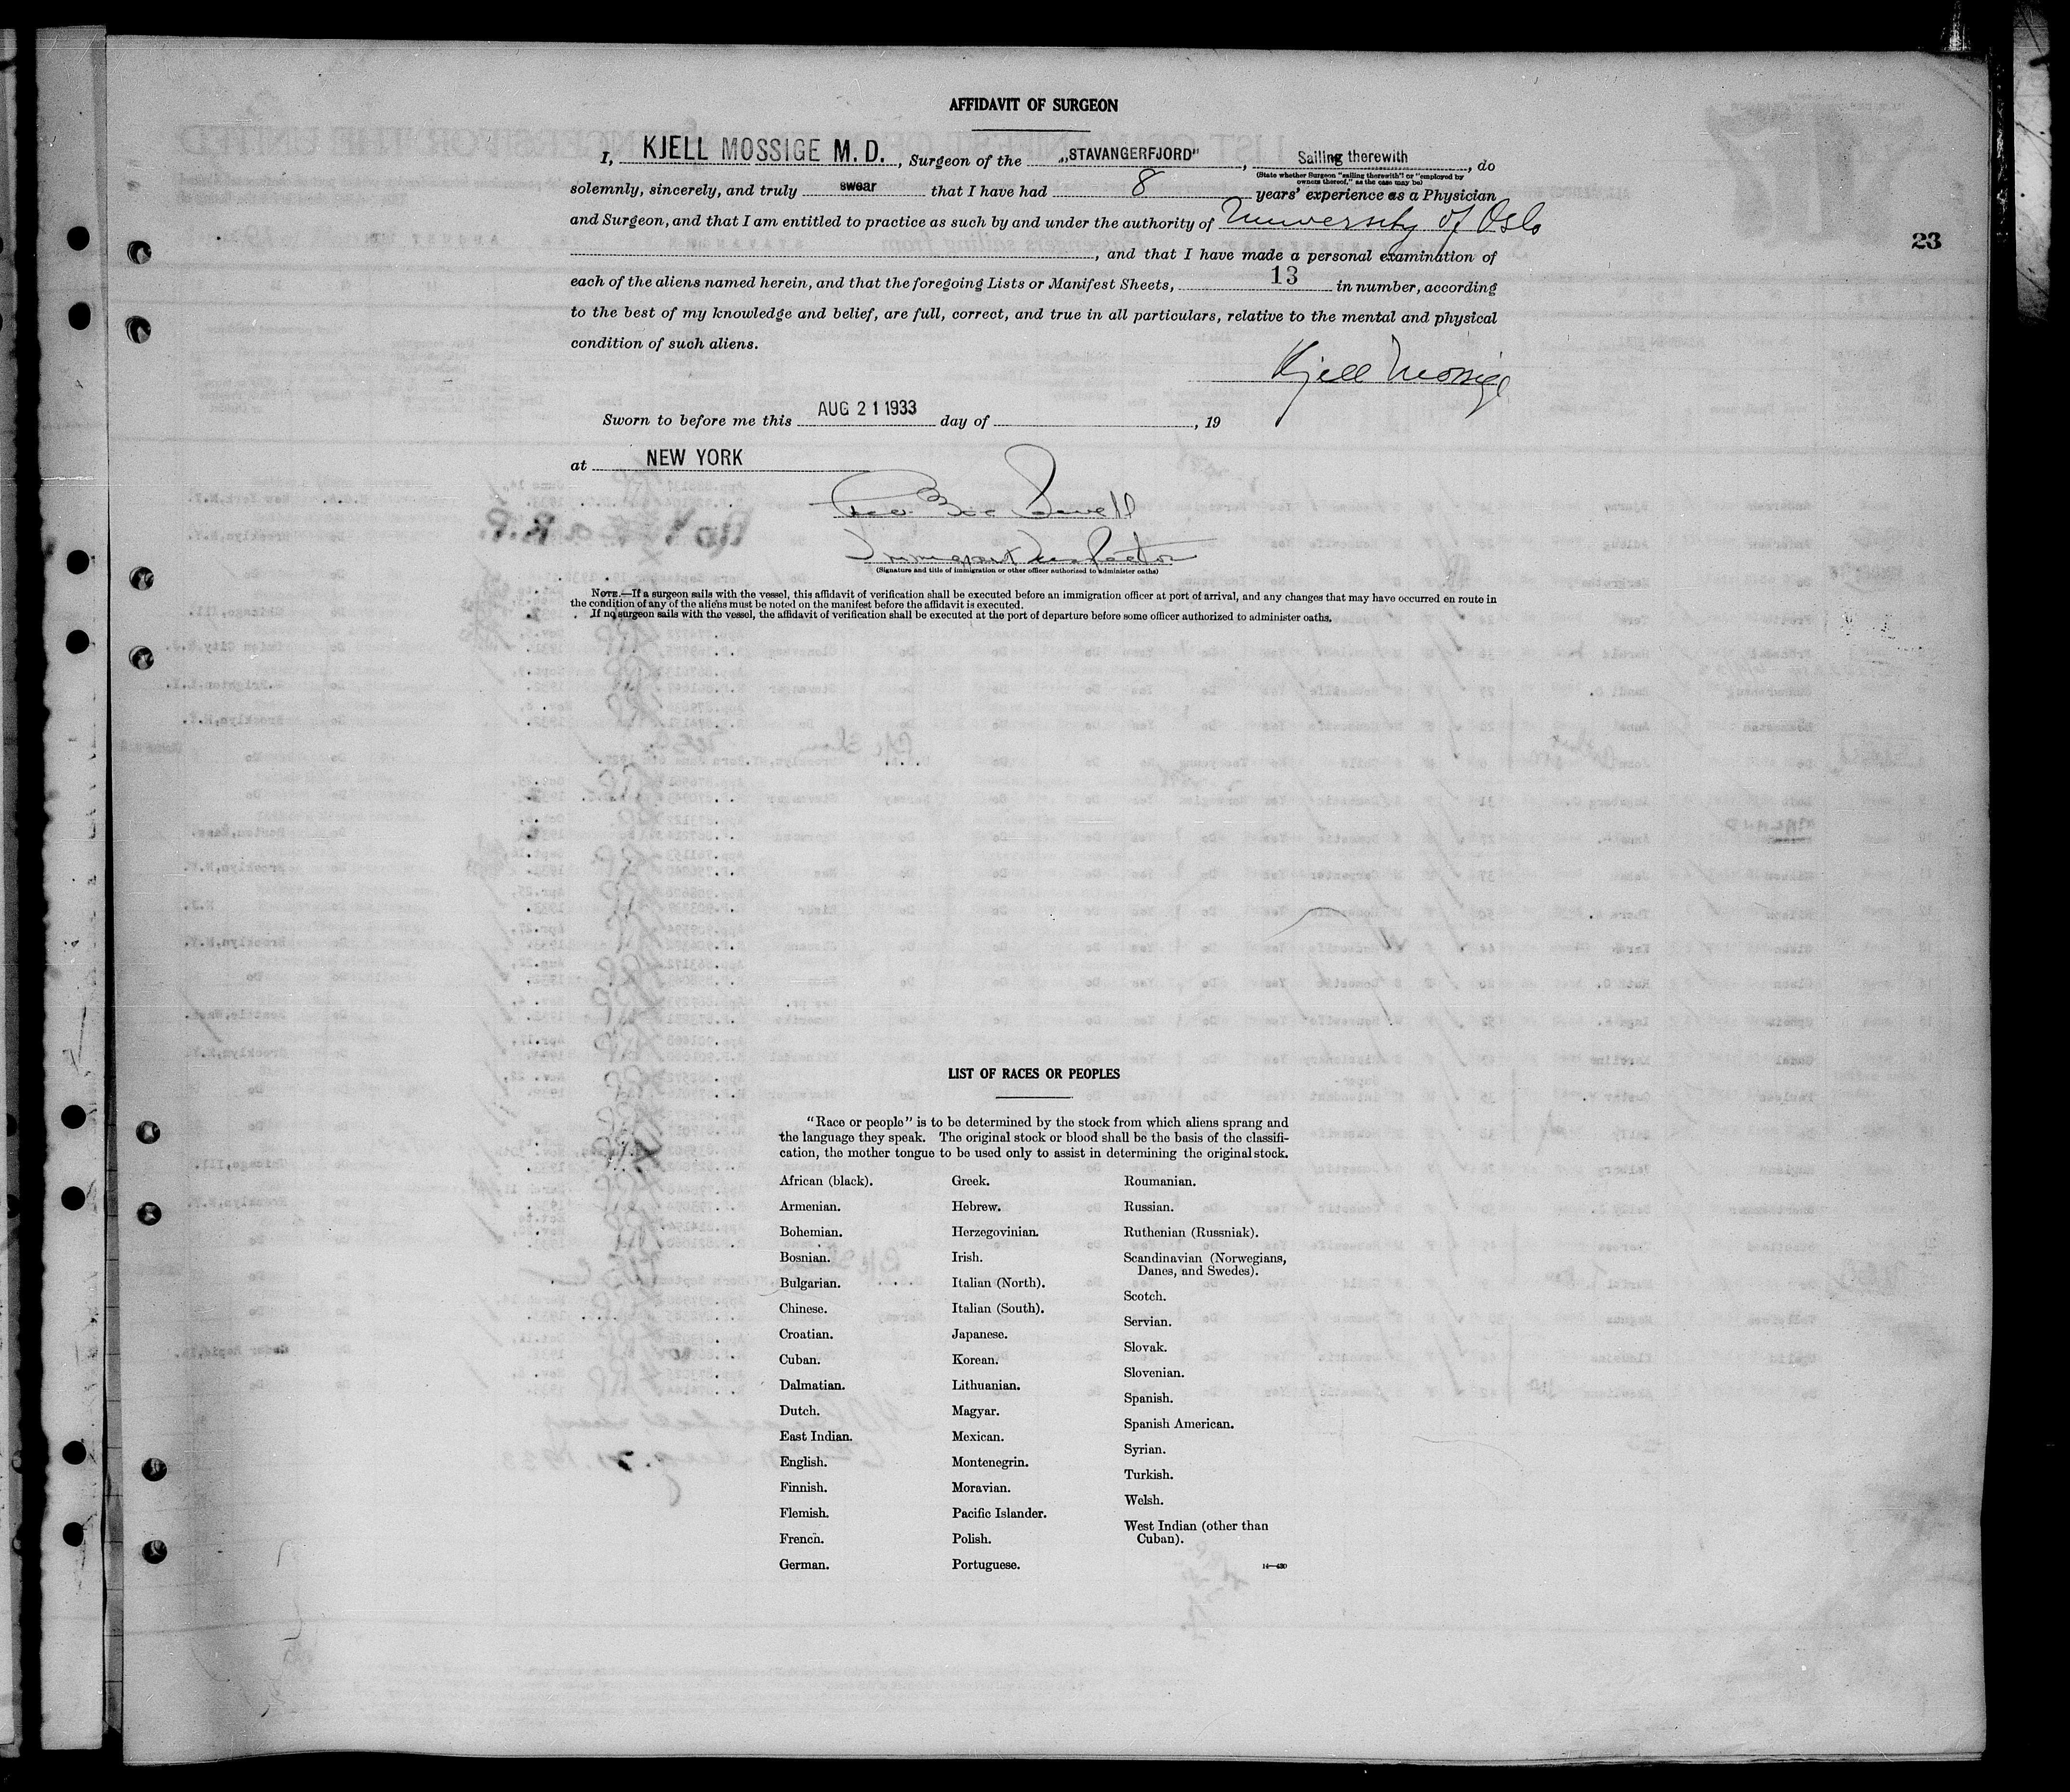 AFFIDAVIT OF SURGEON
I, KJELL MOSSIGE M.D., Surgeon of the „STAVANGERFJORD", Sailing therewith, do
(State whether Surgeon "sailing therewith" or "employed by
owners thereof," as the case may be)
solemnly, sincerely, and truly swear that I have had 8 years' experience as a Physician
and Surgeon, and that I am entitled to practice as such by and under the authority of University of Oslo
, and that I have made a personal examination of
23
each of the aliens named herein, and that the foregoing Lists or Manifest Sheets, 13 in number, according
to the best of my knowledge and belief, are full, correct, and true in all particulars, relative to the mental and physical
condition of such aliens.
Kjell Mossige
Sworn to before me this AUG 21 1933 day of , 19
at NEW YORK
Immigrant Inspector
(Signature and title of immigration or other officer authorized to administer oaths)
NOTE.—If a surgeon sails with the vessel, this affidavit of verification shall be executed before an immigration officer at port of arrival, and any changes that may have occurred en route in
the condition of any of the aliens must be noted on the manifest before the affidavit is executed.
If no surgeon sails with the vessel, the affidavit of verification shall be executed at the port of departure before some officer authorized to administer oaths.
LIST OF RACES OR PEOPLES
"Race or people" is to be determined by the stock from which aliens sprang and
the language they speak. The original stock or blood shall be the basis of the classifi-
cation, the mother tongue to be used only to assist in determining the original stock.
African (black).
Armenian.
Bohemian.
Bosnian.
Bulgarian.
Chinese.
Croatian.
Cuban.
Dalmatian.
Dutch.
East Indian.
English.
Finnish.
Flemish.
French.
German.
Greek.
Hebrew.
Herzegovinian.
Irish.
Italian (North).
Italian (South).
Japanese.
Korean.
Lithuanian.
Magyar.
Mexican.
Montenegrin.
Moravian.
Pacific Islander.
Polish.
Portuguese.
Roumanian.
Russian.
Ruthenian (Russniak).
Scandinavian (Norwegians,
Danes, and Swedes).
Scotch.
Servian.
Slovak.
Slovenian.
Spanish.
Spanish American.
Syrian.
Turkish.
Welsh.
West Indian (other than
Cuban).